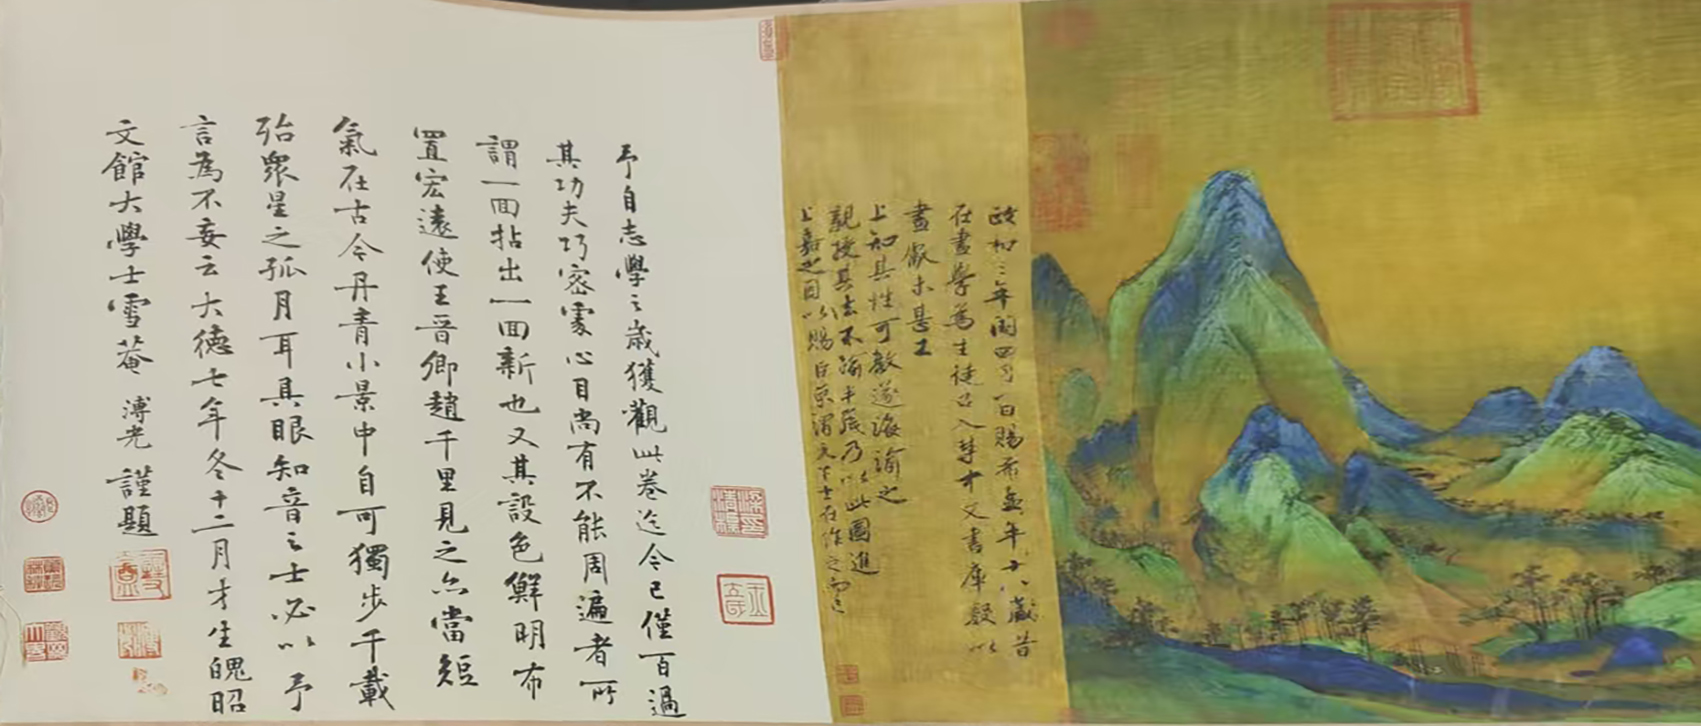 政和三年閏四月一日賜希孟年十八歲昔
在畫學為生徒召入禁中文書庫數以
畫獻未甚工
上知其性可教遂誨諭之
親授其法不踰半歲乃以此圖進
上嘉之因以賜臣京謂天下士在作之而已
予自志學之歲獲觀此卷迄今已僅百過
其功夫巧密處心目尚有不能周遍者所
謂一囬拈出一囬新也又其設色鮮明布
置宏遠使王晉卿趙千里見之亦當短
氣在古今丹青小景中自可獨步千載
殆眾星之孤月耳具眼知音之士必以予
言為不妄云大德七年冬十二月才生魄昭
文館大學士雪菴溥光謹題